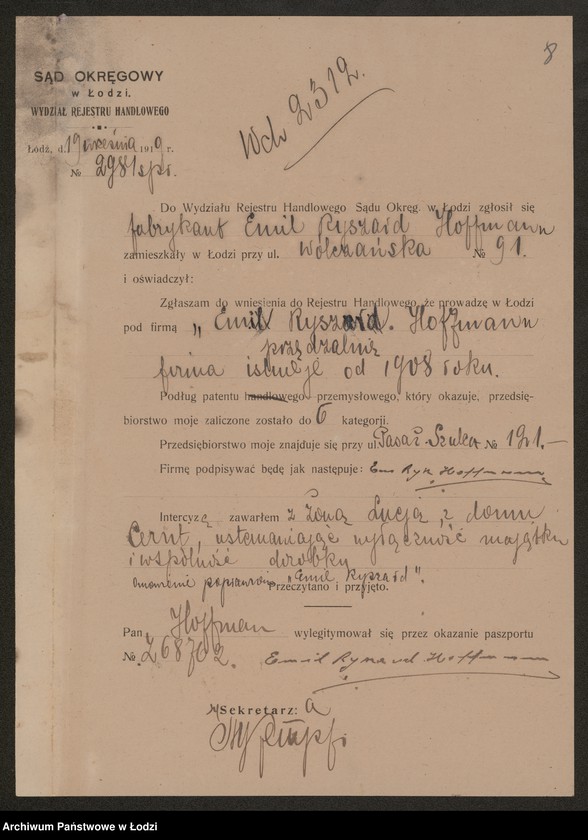 8
SĄD OKRĘGOWY
w Łodzi.
WYDZIAŁ REJESTRU HANDLOWEGO
Wch 2312.
Łódź, d. 19 września 1919 r.
№ 2981/spr.
Do Wydziału Rejestru Handlowego Sądu Okręg. w Łodzi zgłosił się
fabrykant Emil Ryszard Hoffmann
zamieszkały w Łodzi przy ul. Wólczańska № 91.
i oświadczył:
Zgłaszam do wniesienia do Rejestru Handlowego, że prowadzę w Łodzi
pod firmą „Emil Ryszard. Hoffmann
przędzalnię
firma istnieje od 1908 roku.
Podług patentu handlowego przemysłowego, który okazuje, przedsię-
biorstwo moje zaliczone zostało do 6 kategorji.
Przedsiębiorstwo moje znajduje się przy ul. Pasaż Szulca № 121.—
Firmę podpisywać będę jak następuje: Em Rys. Hoffmann
Intercyzę zawarłem z żoną Lucją, z domu
, ustanawiając wyłączność majątku
i wspólność dorobku
omówienie poprawiono „Emil Ryszard".
Przeczytano i przyjęto.
Pan Hoffman wylegitymował się przez okazanie paszportu
№ 268702. Emil Ryszard Hoffmann
Sekretarz:
Archiwum Państwowe w Łodzi